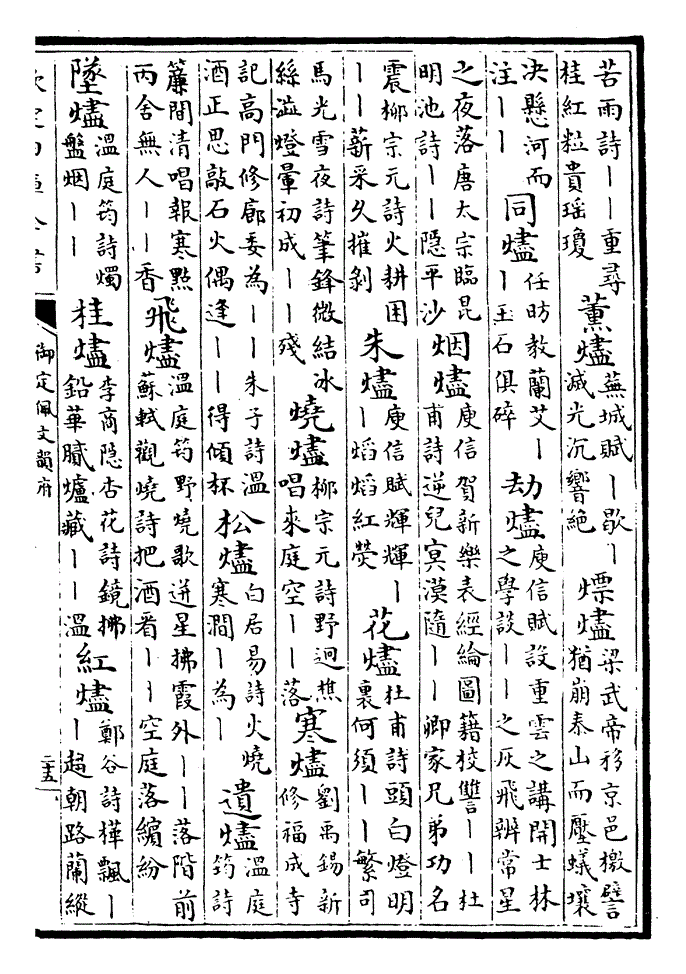 若雨詩丨丨重尋桂紅粒貴瑶瓊 薰燼 蕪城賦丨歇丨滅光沉響絶 熛燼 梁武帝移京邑檄譬猶崩泰山而壓蟻壤
決懸河而注丨丨 同燼 任昉教蘭艾丨丨玉石俱碎 劫燼 庾信賦設重雲之講開士林之學談丨丨之灰飛辨常星
之夜落唐太宗臨昆明池詩丨丨隱平沙 烟燼 庾信賀新樂表經綸圖籍校讐丨丨杜甫詩逆兒㝠漠隨丨丨卿家兄弟功名
震柳宗元詩火耕困丨丨薪采久摧剝 朱燼 庾信賦輝輝丨丨熖熖紅熒 花燼 杜甫詩頭白燈明裏何須丨丨繁司
馬光雪夜詩筆鋒微結冰絲澁燈暈初成丨丨殘 燒燼 柳宗元詩野迥樵唱來庭空丨丨落 寒燼 劉禹錫新修福成寺
記高門修廊委為丨丨朱子詩溫酒正思敲石火偶逢丨丨得傾杯 松燼 白居易詩火燒寒澗丨為丨 遺燼 溫庭筠詩
簾間清唱報寒㸃丙舍無人丨丨香 飛燼 溫庭筠野燒歌迸星拂霞外丨丨落階前蘇軾觀燒詩把酒看丨丨空庭落繽紛
墜燼 溫庭筠詩燭盤烟丨丨 桂燼 李商隐杏花詩鏡拂鉛華膩爐藏丨丨溫 紅燼 鄭谷詩樺飄丨丨超朝路蘭縱
欽定四庫全書 御定佩文韻府 二十五